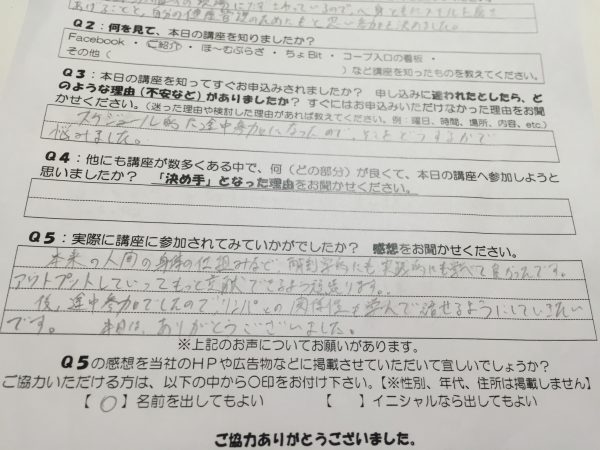 あげることと、自分の健康管理のためにもと思い参加を決めました。
Q2：何を見て、本日の講座を知りましたか？
Facebook ・ ご紹介 ・ ほ～むぷらざ ・ ちょBit ・ コープ入口の看板 ・
その他（　　　　　　　　　　）など講座を知ったものを教えてください。
Q3：本日の講座を知ってすぐお申込みされましたか？　申し込みに迷われたとしたら、ど
のような理由（不安など）がありましたか？ すぐにはお申込みいただけなかった理由をお聞
かせください。（迷った理由や検討した理由があれば教えてください。例：曜日、時間、場所、内容、etc.）
スケジュール的に途中参加になったので、そこをどうするかで
悩みました。
Q4：他にも講座が数多くある中で、何（どの部分）が良くて、本日の講座へ参加しようと
思いましたか？　「決め手」となった理由をお聞かせください。
Q5：実際に講座に参加されてみていかがでしたか？　感想をお聞かせください。
本来の人間の身体の仕組みなど、解剖学的にも実践的にも学べて良かったです。
アウトプットしていってもっと貢献できるよう頑張ります。
後、途中参加でしたので"リンパ"との関係性も学んで活せるようにしていきたい
です。　本日は、ありがとうございました。
※上記のお声についてお願いがあります。
Q5の感想を当社のHPや広告物などに掲載させていただいて宜しいでしょうか？
ご協力いただける方は、以下の中から○印をお付け下さい。【※性別、年代、住所は掲載しません】
【 ○ 】名前を出してもよい　　　【　　】イニシャルなら出してもよい
ご協力ありがとうございました。